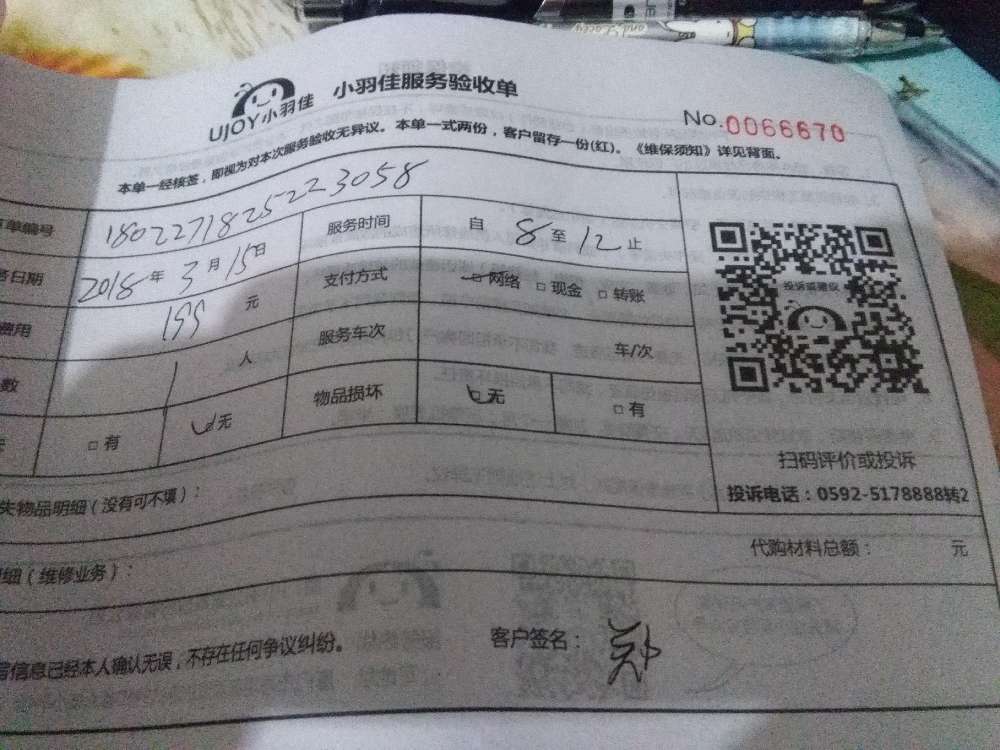 UJOY小羽佳 小羽佳服务验收单
No.0066670
本单一经核签，即视为对本次服务验收无异议。本单一式两份，客户留存一份(红)。《维保须知》详见背面。
单编号 1802271825223058 服务时间 自 8 至 12 止
日期 2018 年 3 月 15 日 支付方式 网络 现金 转账
费用 199 元 服务车次 车/次
数 1 人 物品损坏 无 有
有 无
投诉或建议
扫码评价或投诉
投诉电话：0592-5178888转2
失物品明细（没有可不填）：
代购材料总额： 元
细（维修业务）：
信息已经本人确认无误，不存在任何争议纠纷。 客户签名：